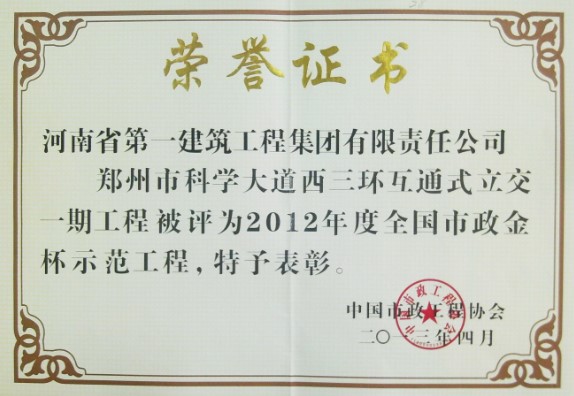 荣誉证书
河南省第一建筑工程集团有限责任公司
郑州市科学大道西三环互通式立交
一期工程被评为2012年度全国市政金
杯示范工程，特予表彰。
中国市政工程协会
二〇一三年四月
中国市政工程协会